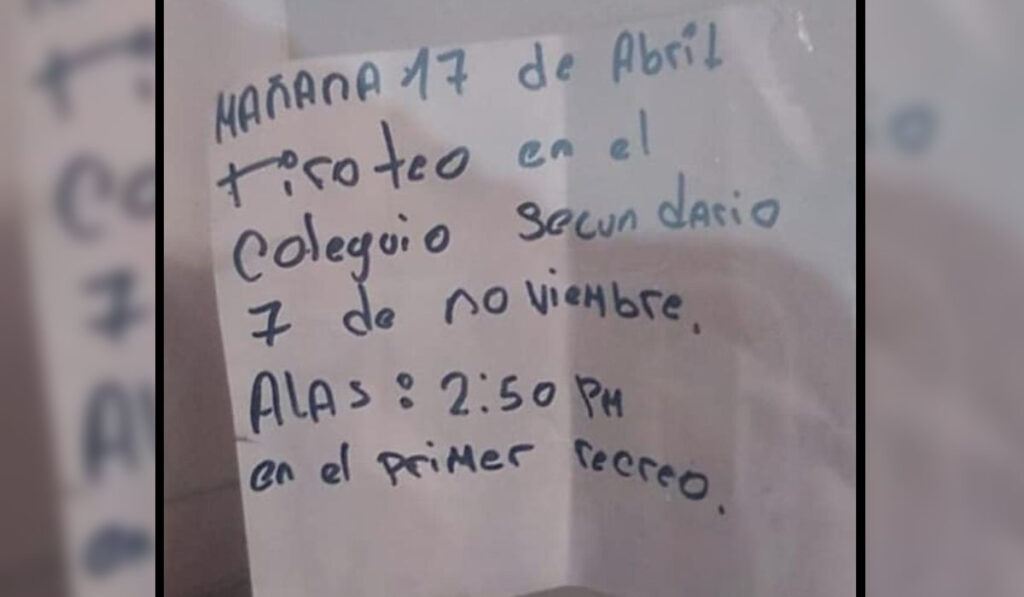 MAÑANA 17 de Abril
tiroteo en el
Coleguio Secundario
7 de noviembre.
AlAs: 2:50 PM
en el primer recreo.